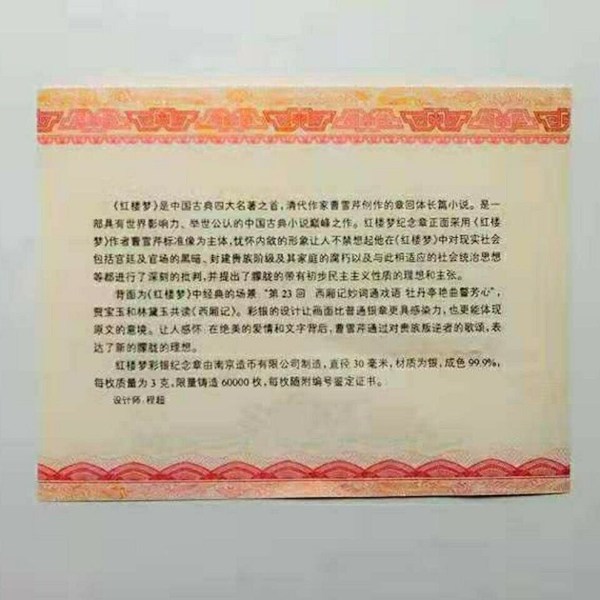 《红楼梦》是中国古典四大名著之首，清代作家曹雪芹创作的章回体长篇小说。是一
部具有世界影响力、举世公认的中国古典小说巅峰之作。红楼梦纪念章正面采用《红楼
梦》作者曹雪芹标准像为主体，忧怀内敛的形象让人不禁想起他在《红楼梦》中对现实社会
包括宫廷及官场的黑暗、封建贵族阶级及其家庭的腐朽以及与此相适应的社会统治思想
等都进行了深刻的批判，并提出了朦胧的带有初步民主主义性质的理想和主张。
背面为《红楼梦》中经典的场景“第23回 西厢记妙词通戏语 牡丹亭艳曲警芳心”，
贾宝玉和林黛玉共读《西厢记》。彩银的设计让画面比普通银章更具感染力，也更能体现
原文的意境。让人感怀 在绝美的爱情和文字背后，曹雪芹通过对贵族叛逆者的歌颂，表
达了新的朦胧的理想。
红楼梦彩银纪念章由南京造币有限公司制造，直径30毫米，材质为银，成色99.9%，
每枚质量为3克，限量铸造60000枚，每枚随附编号鉴定证书。
设计师：程超